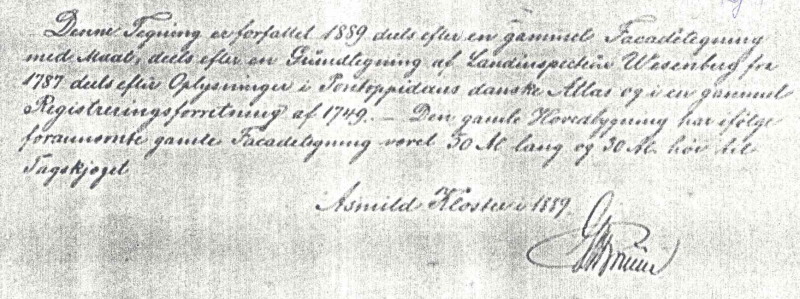 Denne Tegning er forfattet 1889 deels efter en gammel Facadetegning
med Maal, deels efter en Grundtegning af Landinspecteur Wesenberg fra
1787 deels efter Oplysninger i Pontoppidans danske Atlas og i en gammel
Registreringsforretning af 1749. — Den gamle Hovedbygning har ifølge
forannævnte gamle Facadetegning været 50 Al lang og 30 Al. høi til
Tagskjæget
Asmild Kloster i 1889.